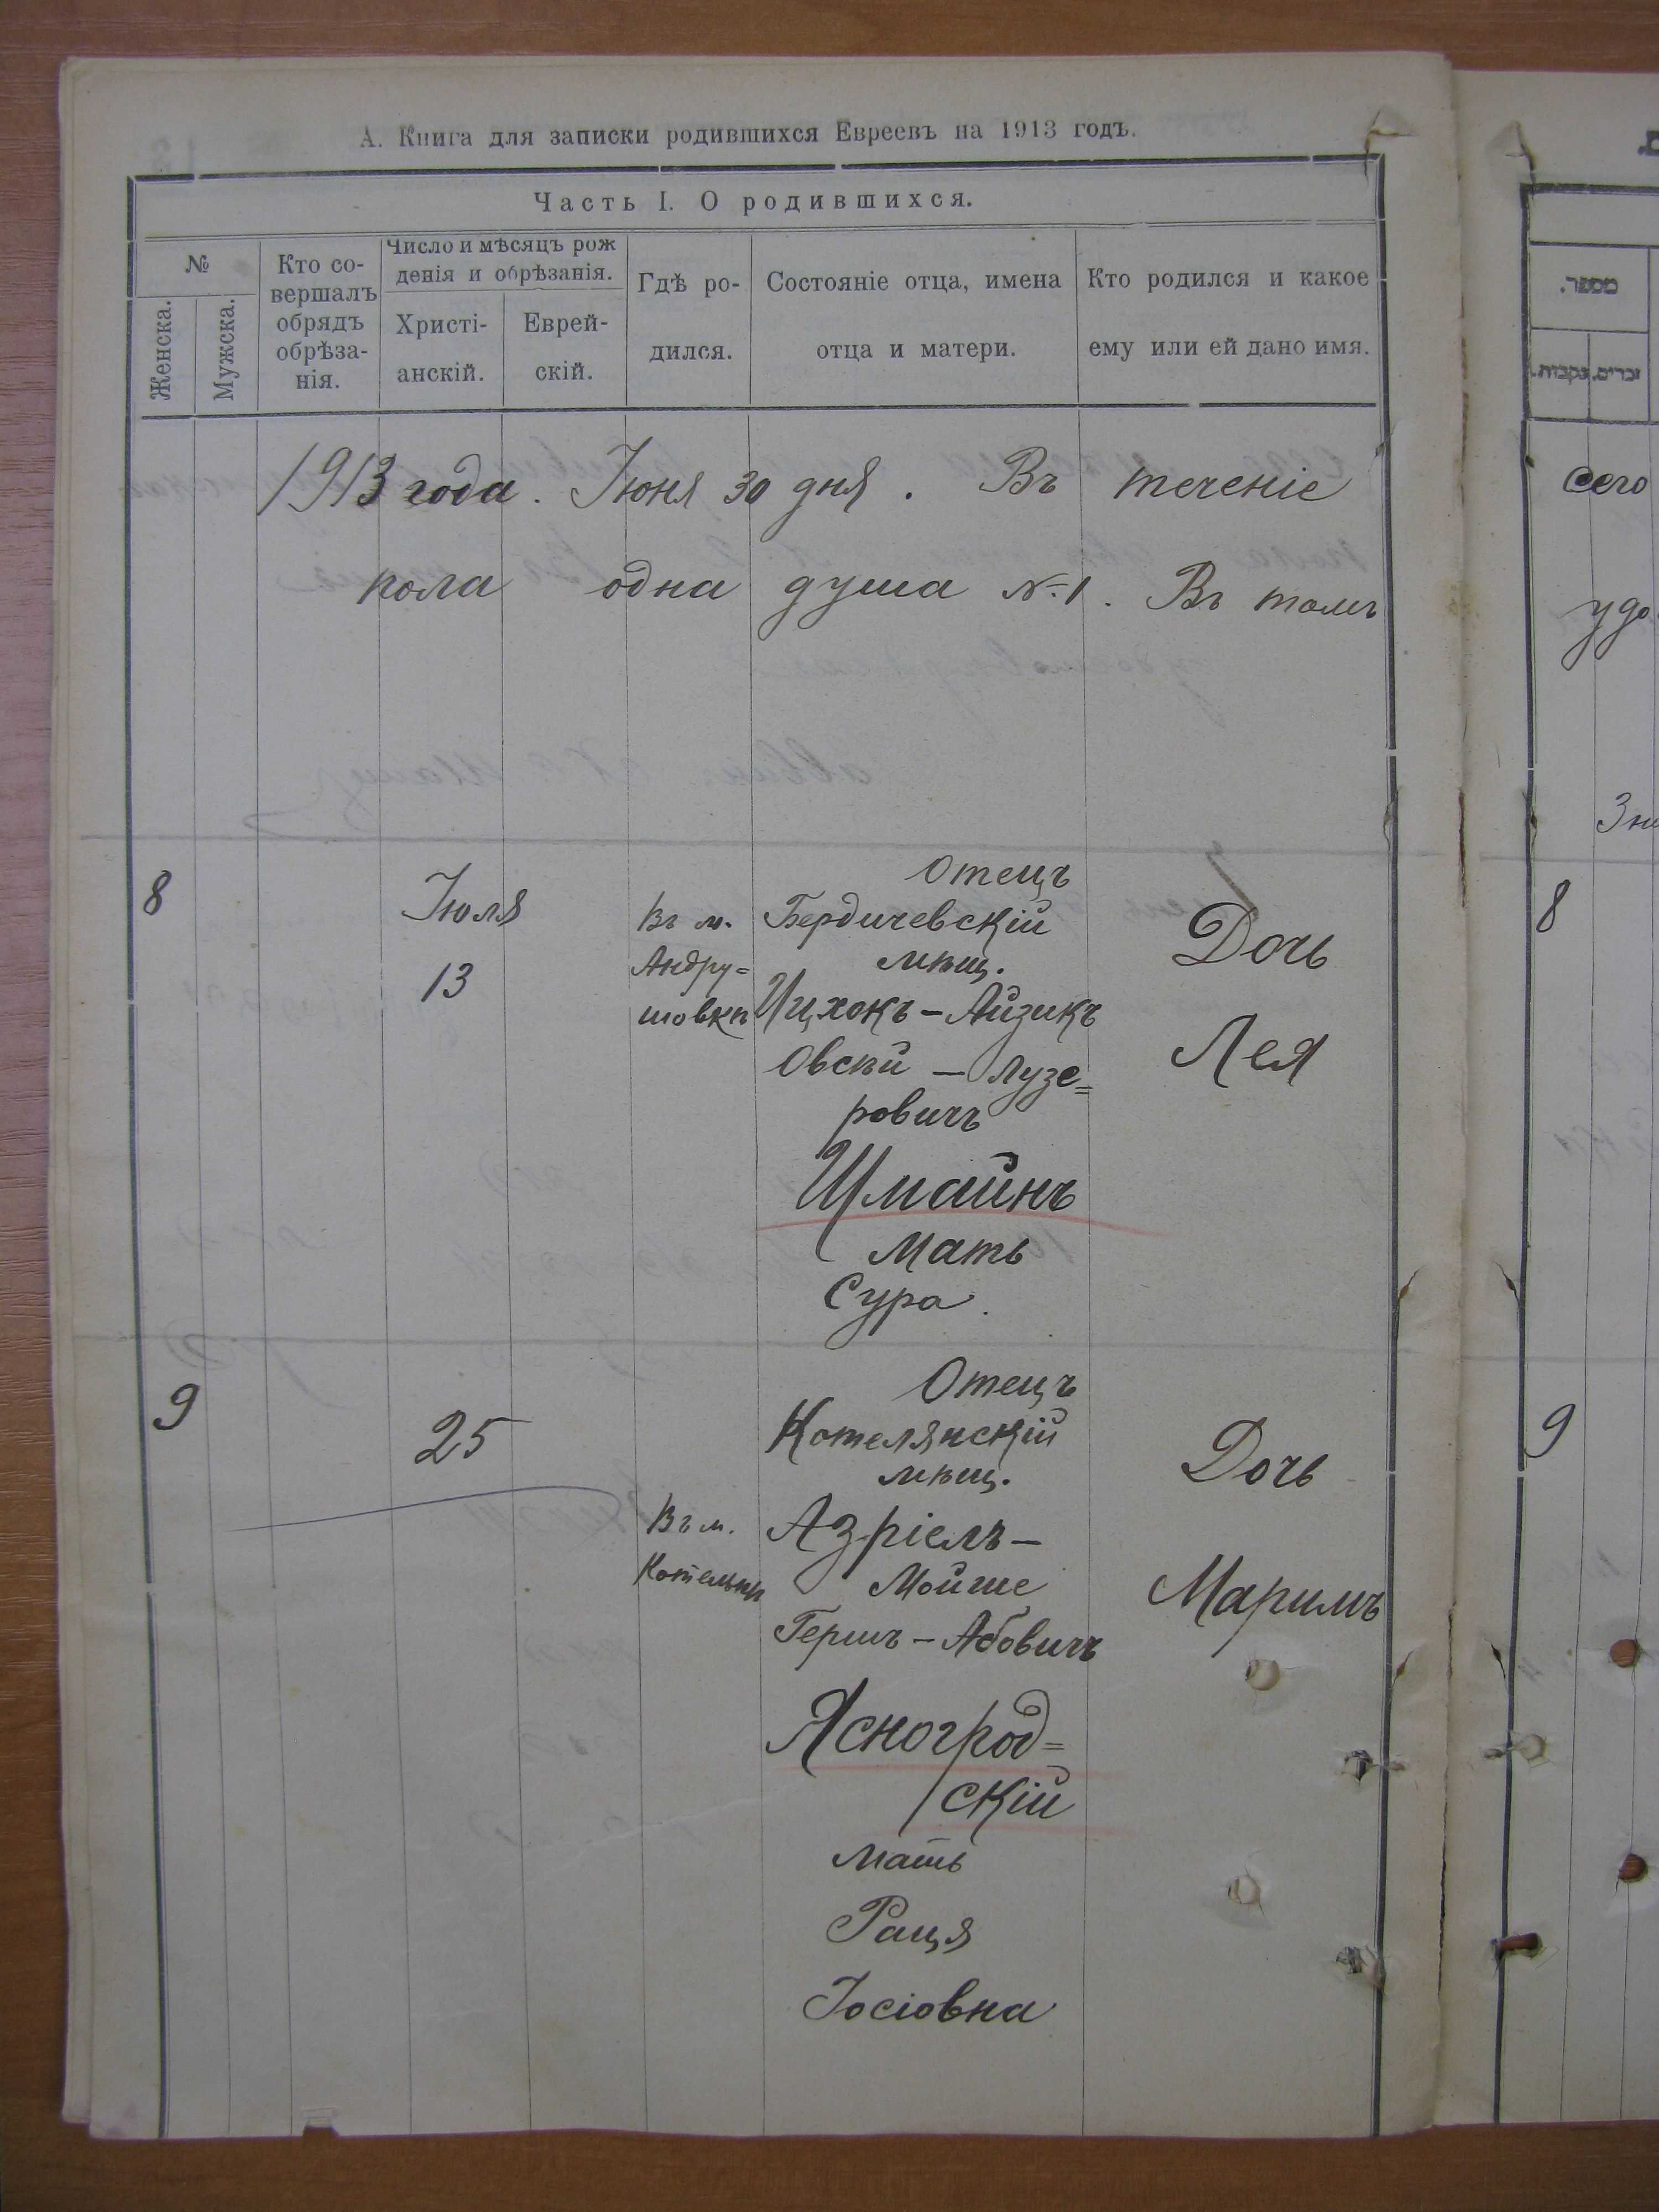 А. Книга для записки родившихся Евреевъ на 1913 годъ.
Часть I. О родившихся.
№
Женска.
Мужска.
Кто со-
вершалъ
обрядъ
обрѣза-
нія.
Число и мѣсяцъ рож
денія и обрѣзанія.
Христі-
анскій.
Еврей-
скій.
Гдѣ ро-
дился.
Состояніе отца, имена
отца и матери.
Кто родился и какое
ему или ей дано имя.
1913 года. Іюня 30 дня. Въ теченіе
пола одна душа №1. Въ томъ
8
Іюля
13
Въ м.
Андру=
шовкѣ
Отецъ
Бердичевскій
мѣщ.
Ицхокъ-Айзикъ
Овсѣй - Лузе=
ровичъ
Шмайнъ
Мать
Сура.
Дочь
Лея
9
25
Въ м.
Котельнѣ
Отецъ
Котелянскій
мѣщ.
Азріель-
Мойше
Гершъ-Абовичъ
Ясногрод=
скій
Мать
Рація
Іосіовна
Дочь
Маримъ
מספר.
זכרים.
נקבות.
сего
удо
Зна
8
9